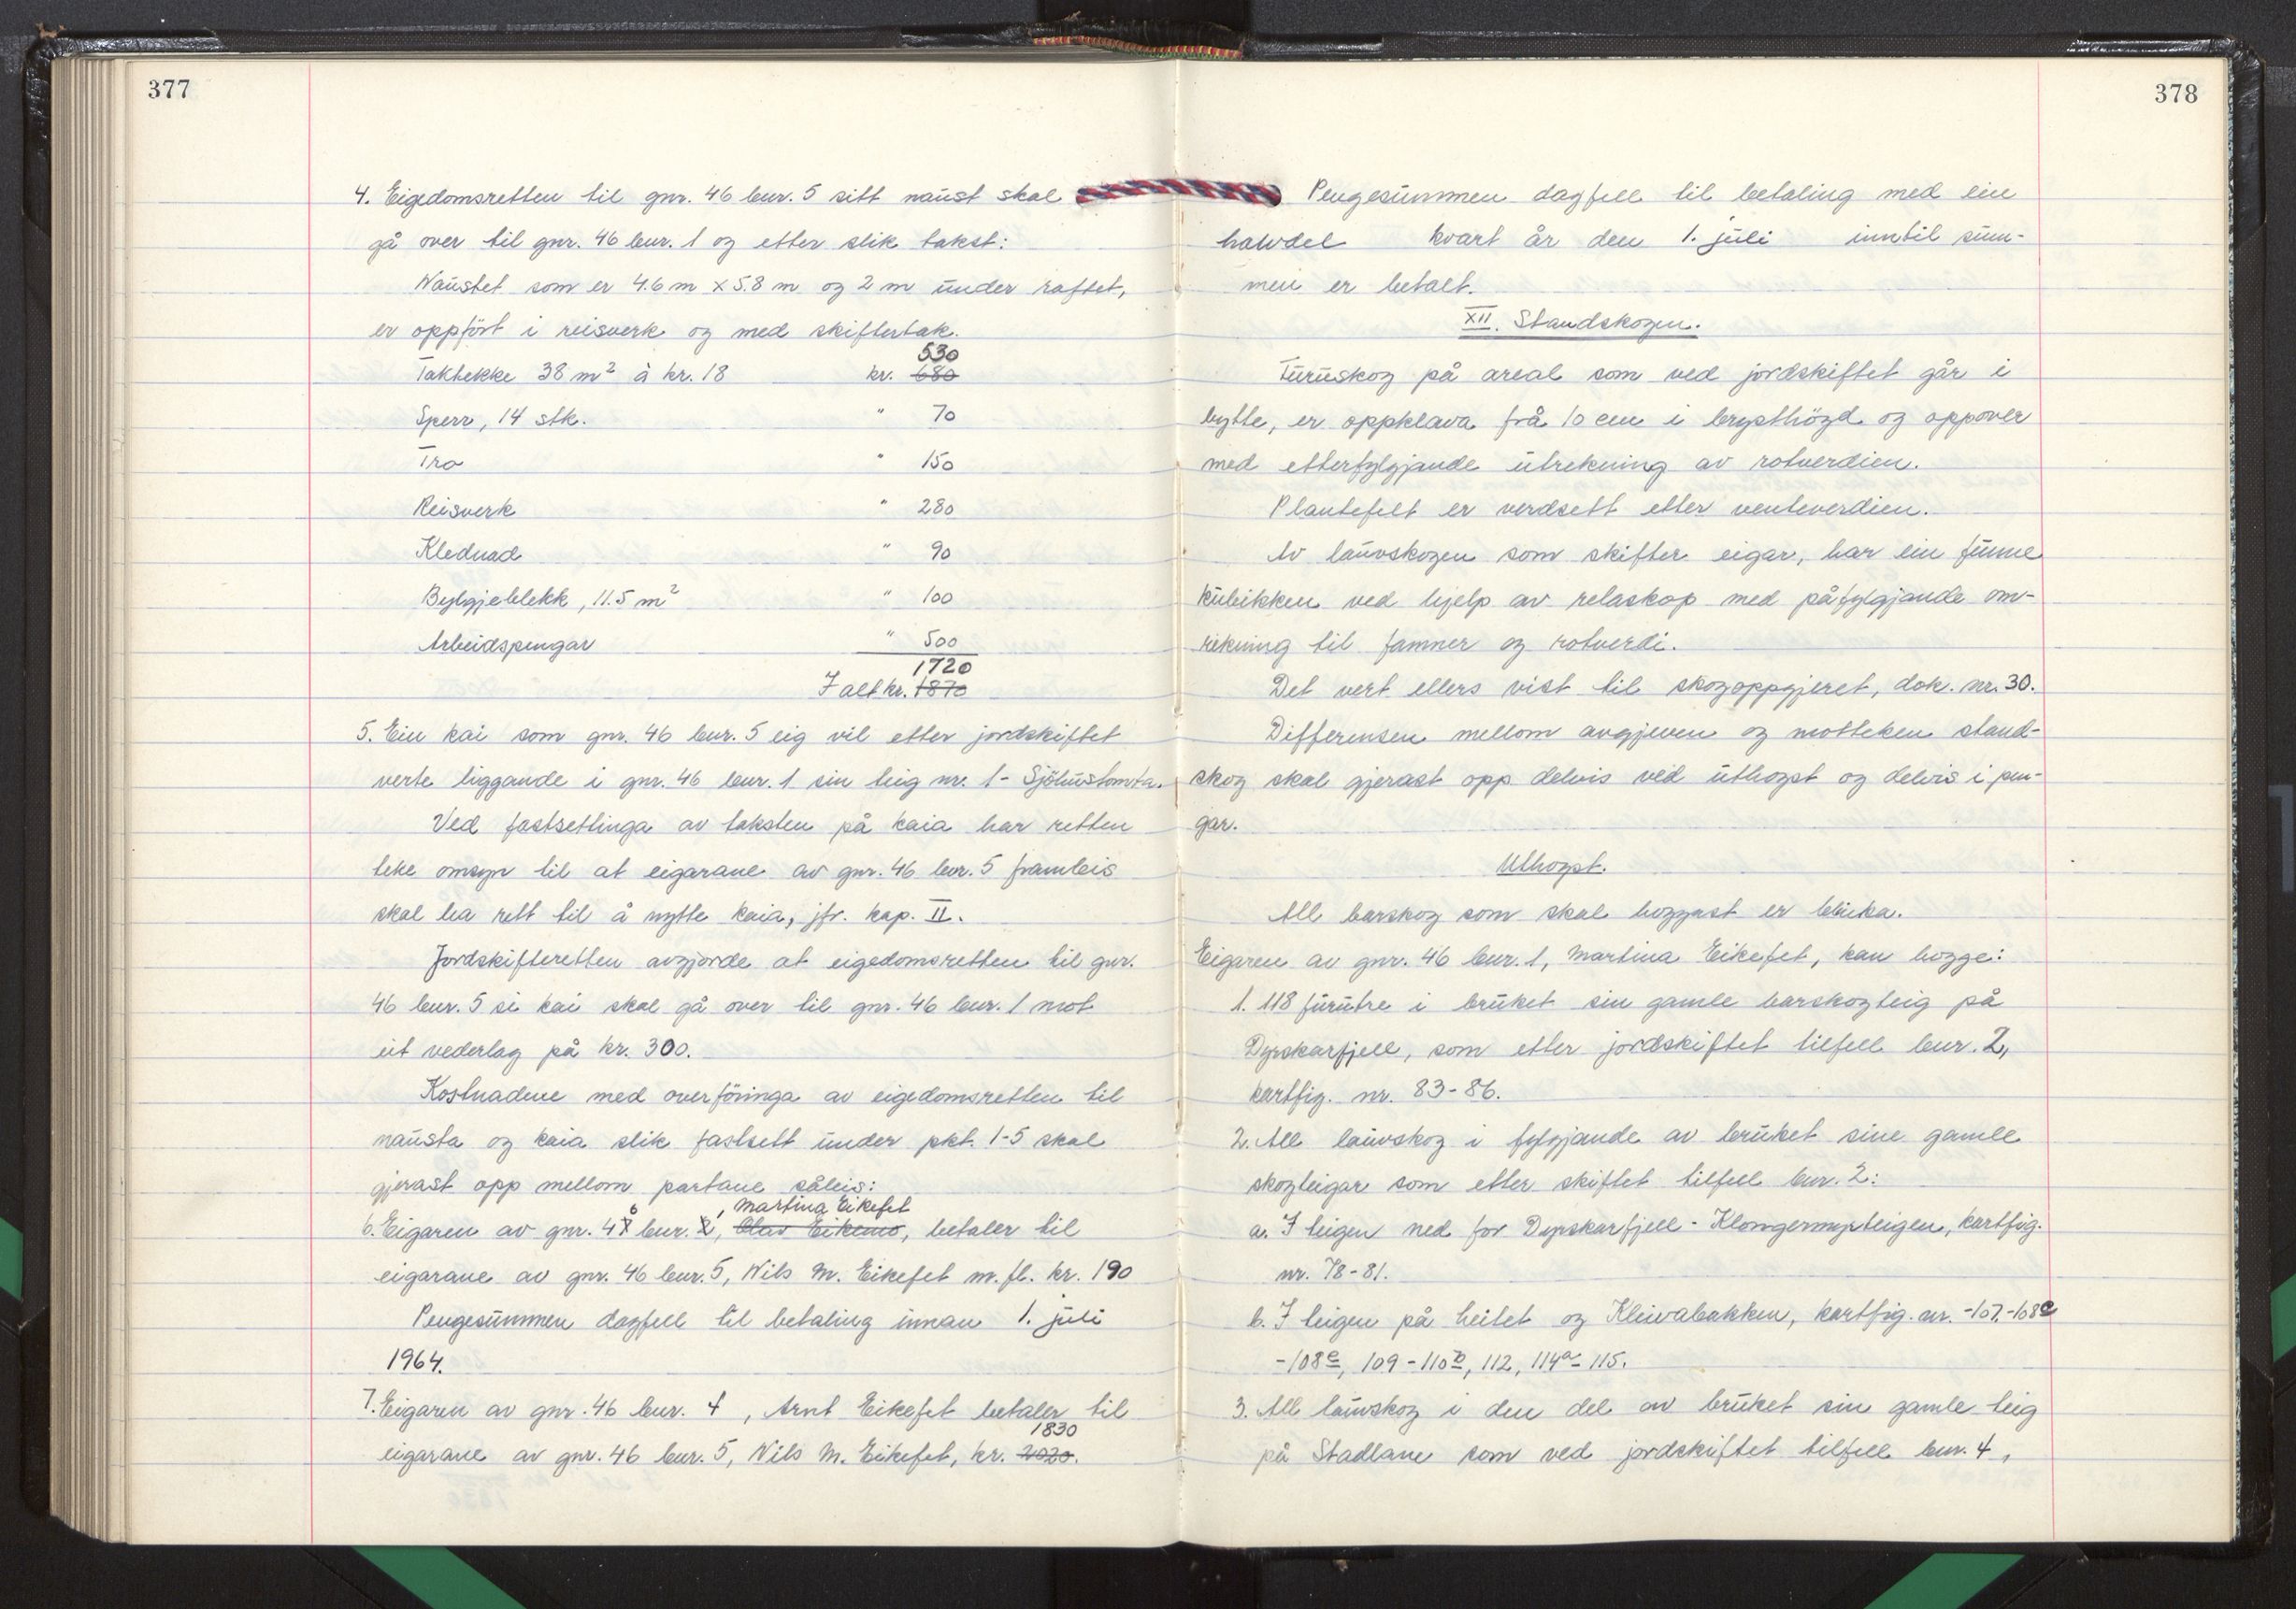 377
4. Eigedomsretten til gnr. 46 bnr. 5 sitt naust skal
gå over til gnr. 46 bnr. 1 og etter slik takst:
Naustet som er 4.6 m x 5.8 m og 2 m under raftet,
er oppfört i reisverk og med skifertak.
530
Taktekke 38 m² à kr. 18 kr. 680
Sperr, 14 stk. " 70
Tro " 150
Reisverk " 280
Klednad " 90
Bylgjeblekk, 11.5 m² " 100
Arbeidspengar " 500
1720
I alt kr. 1870
5. Ein kai som gnr. 46 bnr. 5 eig vil etter jordskiftet
verte liggande i gnr. 46 bnr. 1 sin teig nr. 1 - Sjöhustomta.
Ved fastsetlinga av taksten på kaia har retten
teke omsyn til at eigarane av gnr. 46 bnr. 5 frambeis
skal ha rett til å nytte kaia, jfr. kap. II.
Jordskifteretten avgjorde at eigedomsretten til gnr.
46 bnr. 5 si kai skal gå over til gnr. 46 bnr. 1 mot
eit vederlag på kr. 300.
Kostnadene med overföringa av eigedomsretten til
nausta og kaia slik fastsett under pkt. 1-5 skal
gjerast opp mellom partane såleis:
6 , Martina Eikefet
6. Eigaren av gnr. 4 bnr. 2, Olav Eikemo, betaler til
eigarane av gnr. 46 bnr. 5, Nils M. Eikefet m. fl. kr. 190
Pengesummen dagfell til betaling innan 1. juli
1964.
7. Eigaren av gnr. 46 bnr. 4, Arnt Eikefet betaler til
1830
eigarane av gnr. 46 bnr. 5, Nils M. Eikefet, kr. 2020.
378
Pengesummen dagfell til betaling med ein
halvdel kvart år den 1. juli inntil sum-
men er betalt.
XII. Standskogen.
Furuskog på areal som ved jordskiftet går i
bytte, er oppklava frå 10 cm i brysthögd og oppover
med etterfylgjande utrekning av rotverdien.
Plantefelt er verdsett etter venteverdien.
Av lauvskogen som skifter eigar, har ein funne
kubikken ved hjelp av relaskop med påfylgjande om-
rekning til famner og rotverdi.
Det vert ellers vist til skogoppgjeret, dok. nr. 30.
Differensen mellom avgjeven og motteken stand-
skog skal gjerast opp delvis ved uthogst og delvis i pen-
gar.
Uthogst.
All barskog som skal hoggast er blinka.
Eigaren av gnr. 46 bnr. 1, Martina Eikefet, kan hogge:
1. 118 furutre i bruket sin gamle barskogteig på
Dyrskarfjell, som etter jordskiftet tilfell bnr. 2,
kartfig. nr. 83-86.
2. All lauvskog i fylgjande av bruket sine gamle
skogteigar som etter skiftet tilfell bnr. 2:
a. I teigen ned for Dyrskarfjell - Klongermyrteigen, kartfig.
nr. 78-81.
b. I teigen på heitet og Kleivabakken, kartfig. nr. -107,-108c
-108e, 109-110b, 112, 114a-115.
3. All lauvskog i den del av bruket sin gamle teig
på Stadlane som ved jordskiftet tilfell bnr. 4,